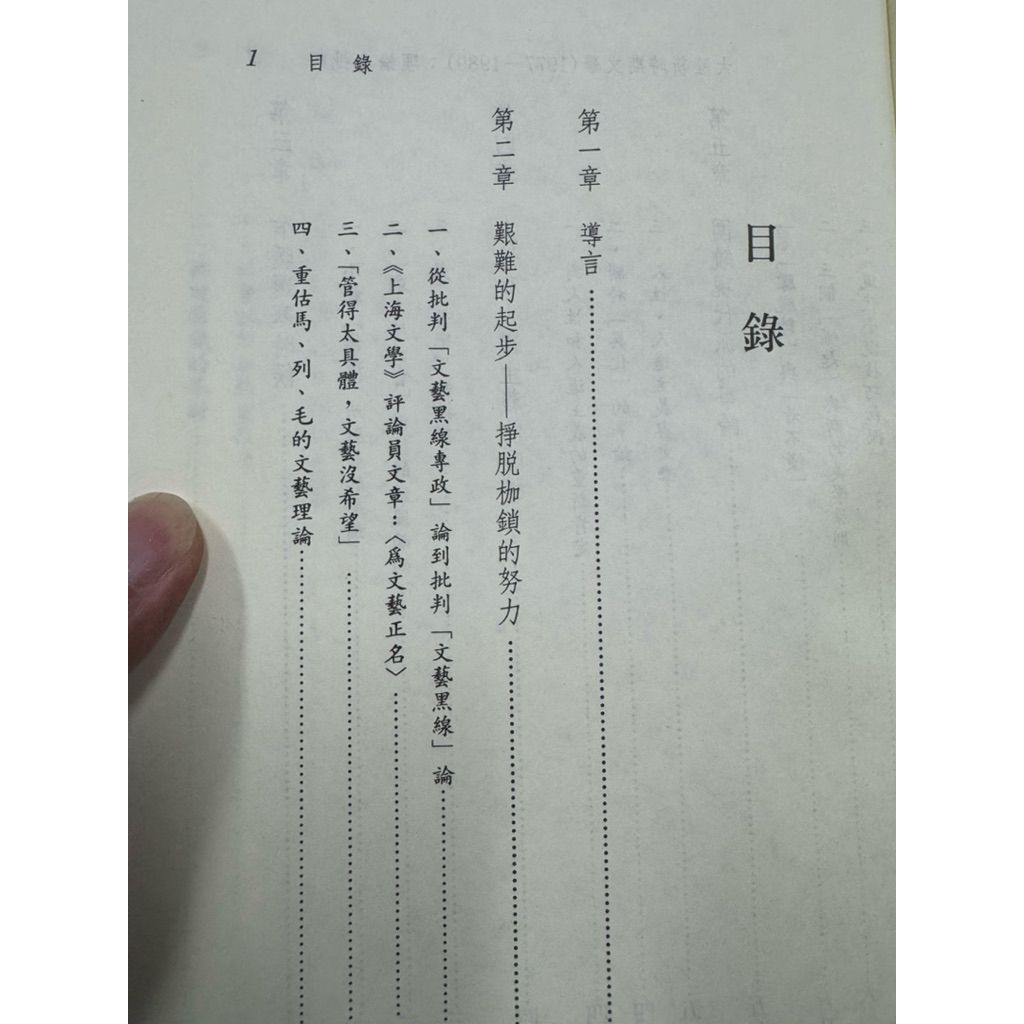 1 目錄
目錄
第一章 導言
第二章 艱難的起步——掙脱枷鎖的努力
一、從批判「文藝黑線專政」論到批判「文藝黑線」論
二、《上海文學》評論員文章：〈爲文藝正名〉
三、「管得太具體，文藝沒希望」
四、重估馬、列、毛的文藝理論